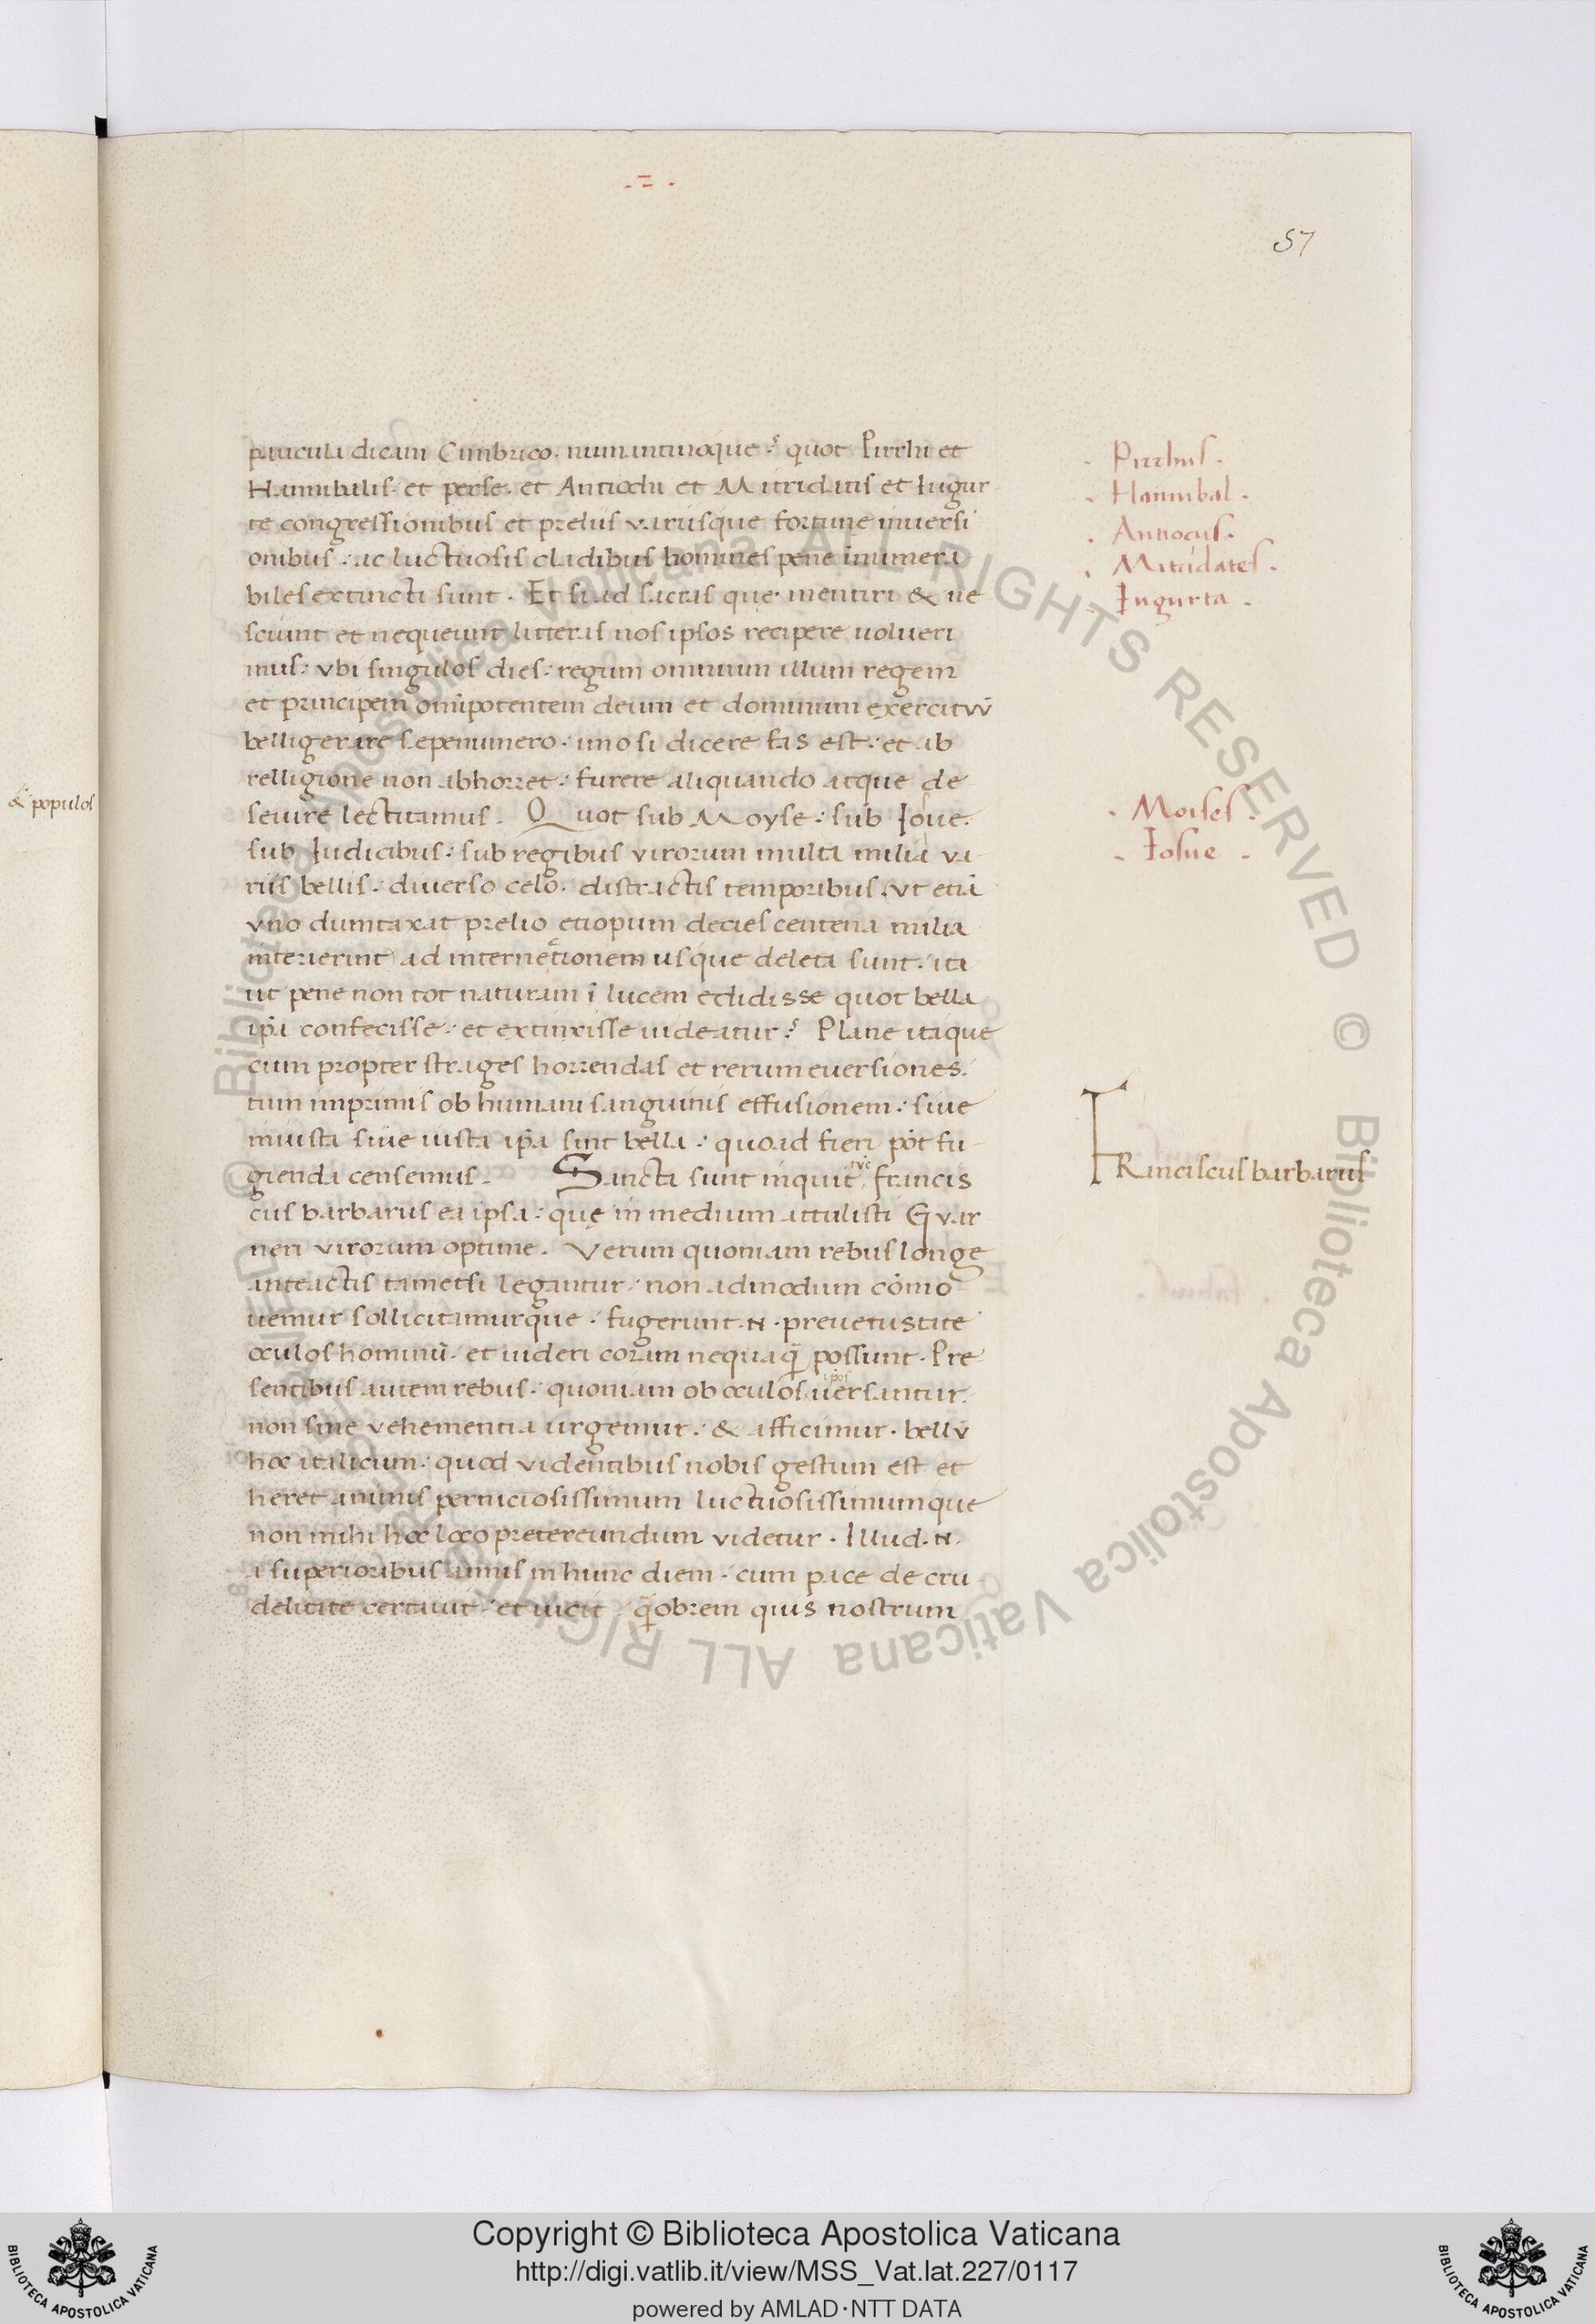 57
paucula dicam Cimbrico. numantinoque? quot Pirrhi et
Hannibalis. et perse. et Antiochi et Mitridatis et Iugur
te congressionibus et preliis variisque fortunę inuersi
onibus: ac luctuosis cladibus homines pene inumera
biles extincti sunt. Et si ad sacras que mentiri & ne
sciunt et nequeunt litteras nos ipsos recipere uolueri
mus: vbi singulos dies: regum omnium illum regem
et principem omīpotentem deum et dominum exercituū
belligerare sepenumero. imo si dicere fas est: et ab
relligione non abhorret: furere aliquando atque de
seuire lectitamus. Quot sub Moyse: sub Iosue.
sub Iudicibus: sub regibus virorum multa milia va
riis bellis: diuerso celo. distractis temporibus. vt etiā
vno dumtaxat prelio etiopum decies centena milia
interierint ad internetionem usque deleta sunt. ita
ut pene non tot naturam ī lucem edidisse quot bella
ip̄a confecisse: et extinxisse uideatur? Plane itaque
cum propter strages horrendas et rerum euersiones.
tum imprimis ob humani sanguinis effusionem: siue
iniusta siue iusta ip̄a sint bella: quoad fieri pōt fu
gienda censemus. Sancta sunt inquit tūc francis
cus barbarus ea ipsa: quę in medium attulisti Guar
neri virorum optime. Verum quoniam rebus longe
anteactis tametsi legantur: non admodum cōmo
uemur sollicitamurque. fugerunt .N. pre uetustate
oculos hominū. et uideri coram nequaq̄ possunt. Pre
sentibus autem rebus. quoniam ob oculos ip̄os uersantur.
non sine vehementia urgemur: & afficimur. bellū
hoc italicum. quod videntibus nobis gestum est et
heret animis perniciosissimum luctuosissimumque
non mihi hoc loco pretereundum videtur. Illud .N.
a superioribus annis in hunc diem. cum pace de cru
delitate certauit: et uicit. q̄obrem quis nostrum
. Pirrhus .
. Hannibal .
. Antiocus .
. Mitridates .
. Iugurta .
. Moises .
. Iosue .
FRanciscus barbarus
& populos
Copyright © Biblioteca Apostolica Vaticana
http://digi.vatlib.it/view/MSS_Vat.lat.227/0117
powered by AMLAD·NTT DATA
BIBLIOTECA APOSTOLICA VATICANA
BIBLIOTECA APOSTOLICA VATICANA
© Biblioteca Apostolica Vaticana ALL RIGHTS RESERVED
© Biblioteca Apostolica Vaticana ALL RIGHTS RESERVED